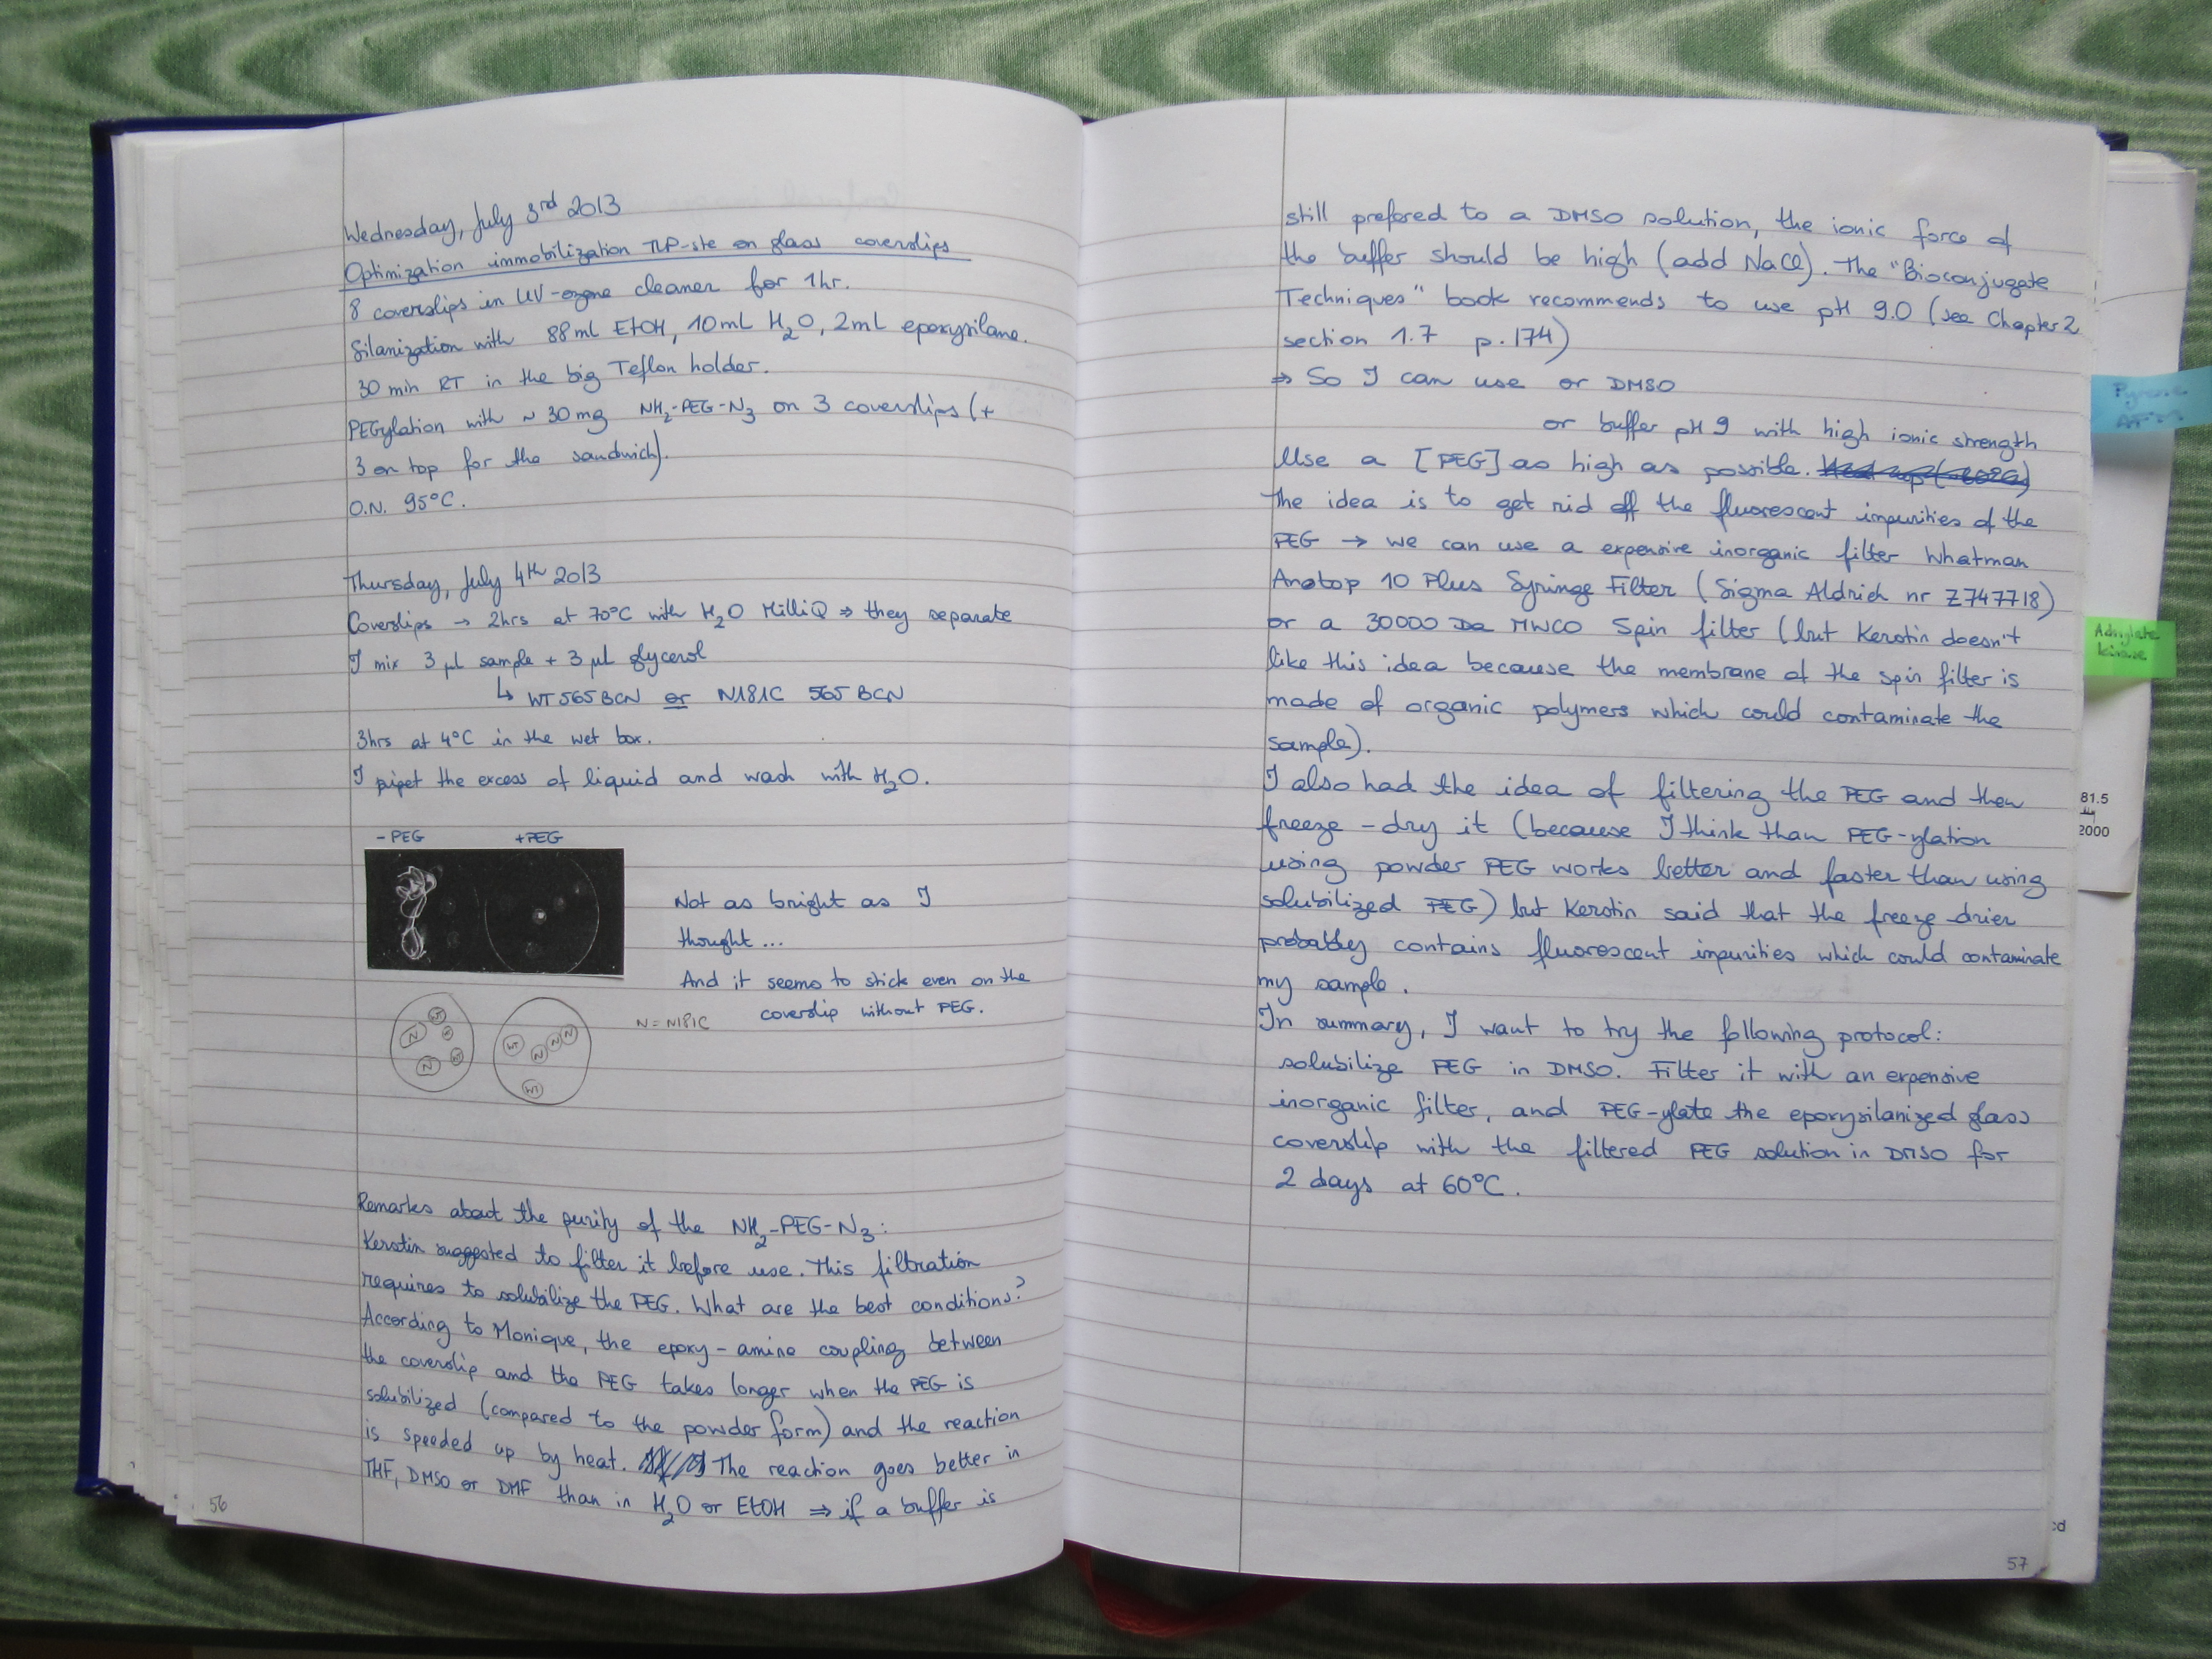 Wednesday, July 3rd 2013
Optimization immobilization TLP-ste on glass coverslips
8 coverslips in UV-ozone cleaner for 1hr.
Silanization with 88ml EtOH, 10mL H2O, 2mL epoxysilane.
30 min RT in the big Teflon holder.
PEGylation with ~ 30mg NH2-PEG-N3 on 3 coverslips (+
3 on top for the sandwich).
O.N. 95°C.
Thursday, July 4th 2013
Coverslips → 2hrs at 70°C with H2O MilliQ ⇒ they separate
I mix 3 µL sample + 3 µL glycerol
↳ WT565BCN or N181C 565 BCN
3hrs at 4°C in the wet box.
I pipet the excess of liquid and wash with H2O.
- PEG +PEG
Not as bright as I
thought...
And it seems to stick even on the
coverslip without PEG.
N = N181C
WT
N
WT
N
WT
N
N
N
WT
Remarks about the purity of the NH2-PEG-N3:
Kerstin suggested to filter it before use. This filtration
requires to solubilize the PEG. What are the best conditions?
According to Monique, the epoxy-amine coupling between
the coverslip and the PEG takes longer when the PEG is
solubilized (compared to the powder form) and the reaction
is speeded up by heat. The reaction goes better in
THF, DMSO or DMF than in H2O or EtOH ⇒ if a buffer is
56
still prefered to a DMSO solution, the ionic force of
the buffer should be high (add NaCl). The "Bioconjugate
Techniques" book recommends to use pH 9.0 (see Chapter 2
section 1.7 p.174)
⇒ So I can use or DMSO
or buffer pH 9 with high ionic strength
Use a [PEG] as high as possible.
The idea is to get rid off the fluorescent impurities of the
PEG → we can use a expensive inorganic filter Whatman
Anotop 10 Plus Syringe Filter (Sigma Aldrich nr Z747718)
or a 30000 Da MWCO Spin filter (but Kerstin doesn't
like this idea because the membrane of the spin filter is
made of organic polymers which could contaminate the
sample).
I also had the idea of filtering the PEG and then
freeze-dry it (because I think than PEG-ylation
using powder PEG works better and faster than using
solubilized PEG) but Kerstin said that the freeze-drier
probably contains fluorescent impurities which could contaminate
my sample.
In summary, I want to try the following protocol:
solubilize PEG in DMSO. Filter it with an expensive
inorganic filter, and PEG-ylate the epoxysilanized glass
coverslip with the filtered PEG solution in DMSO for
2 days at 60°C.
57
Pyrene
Adnylate
kinase
81.5
2000
cd